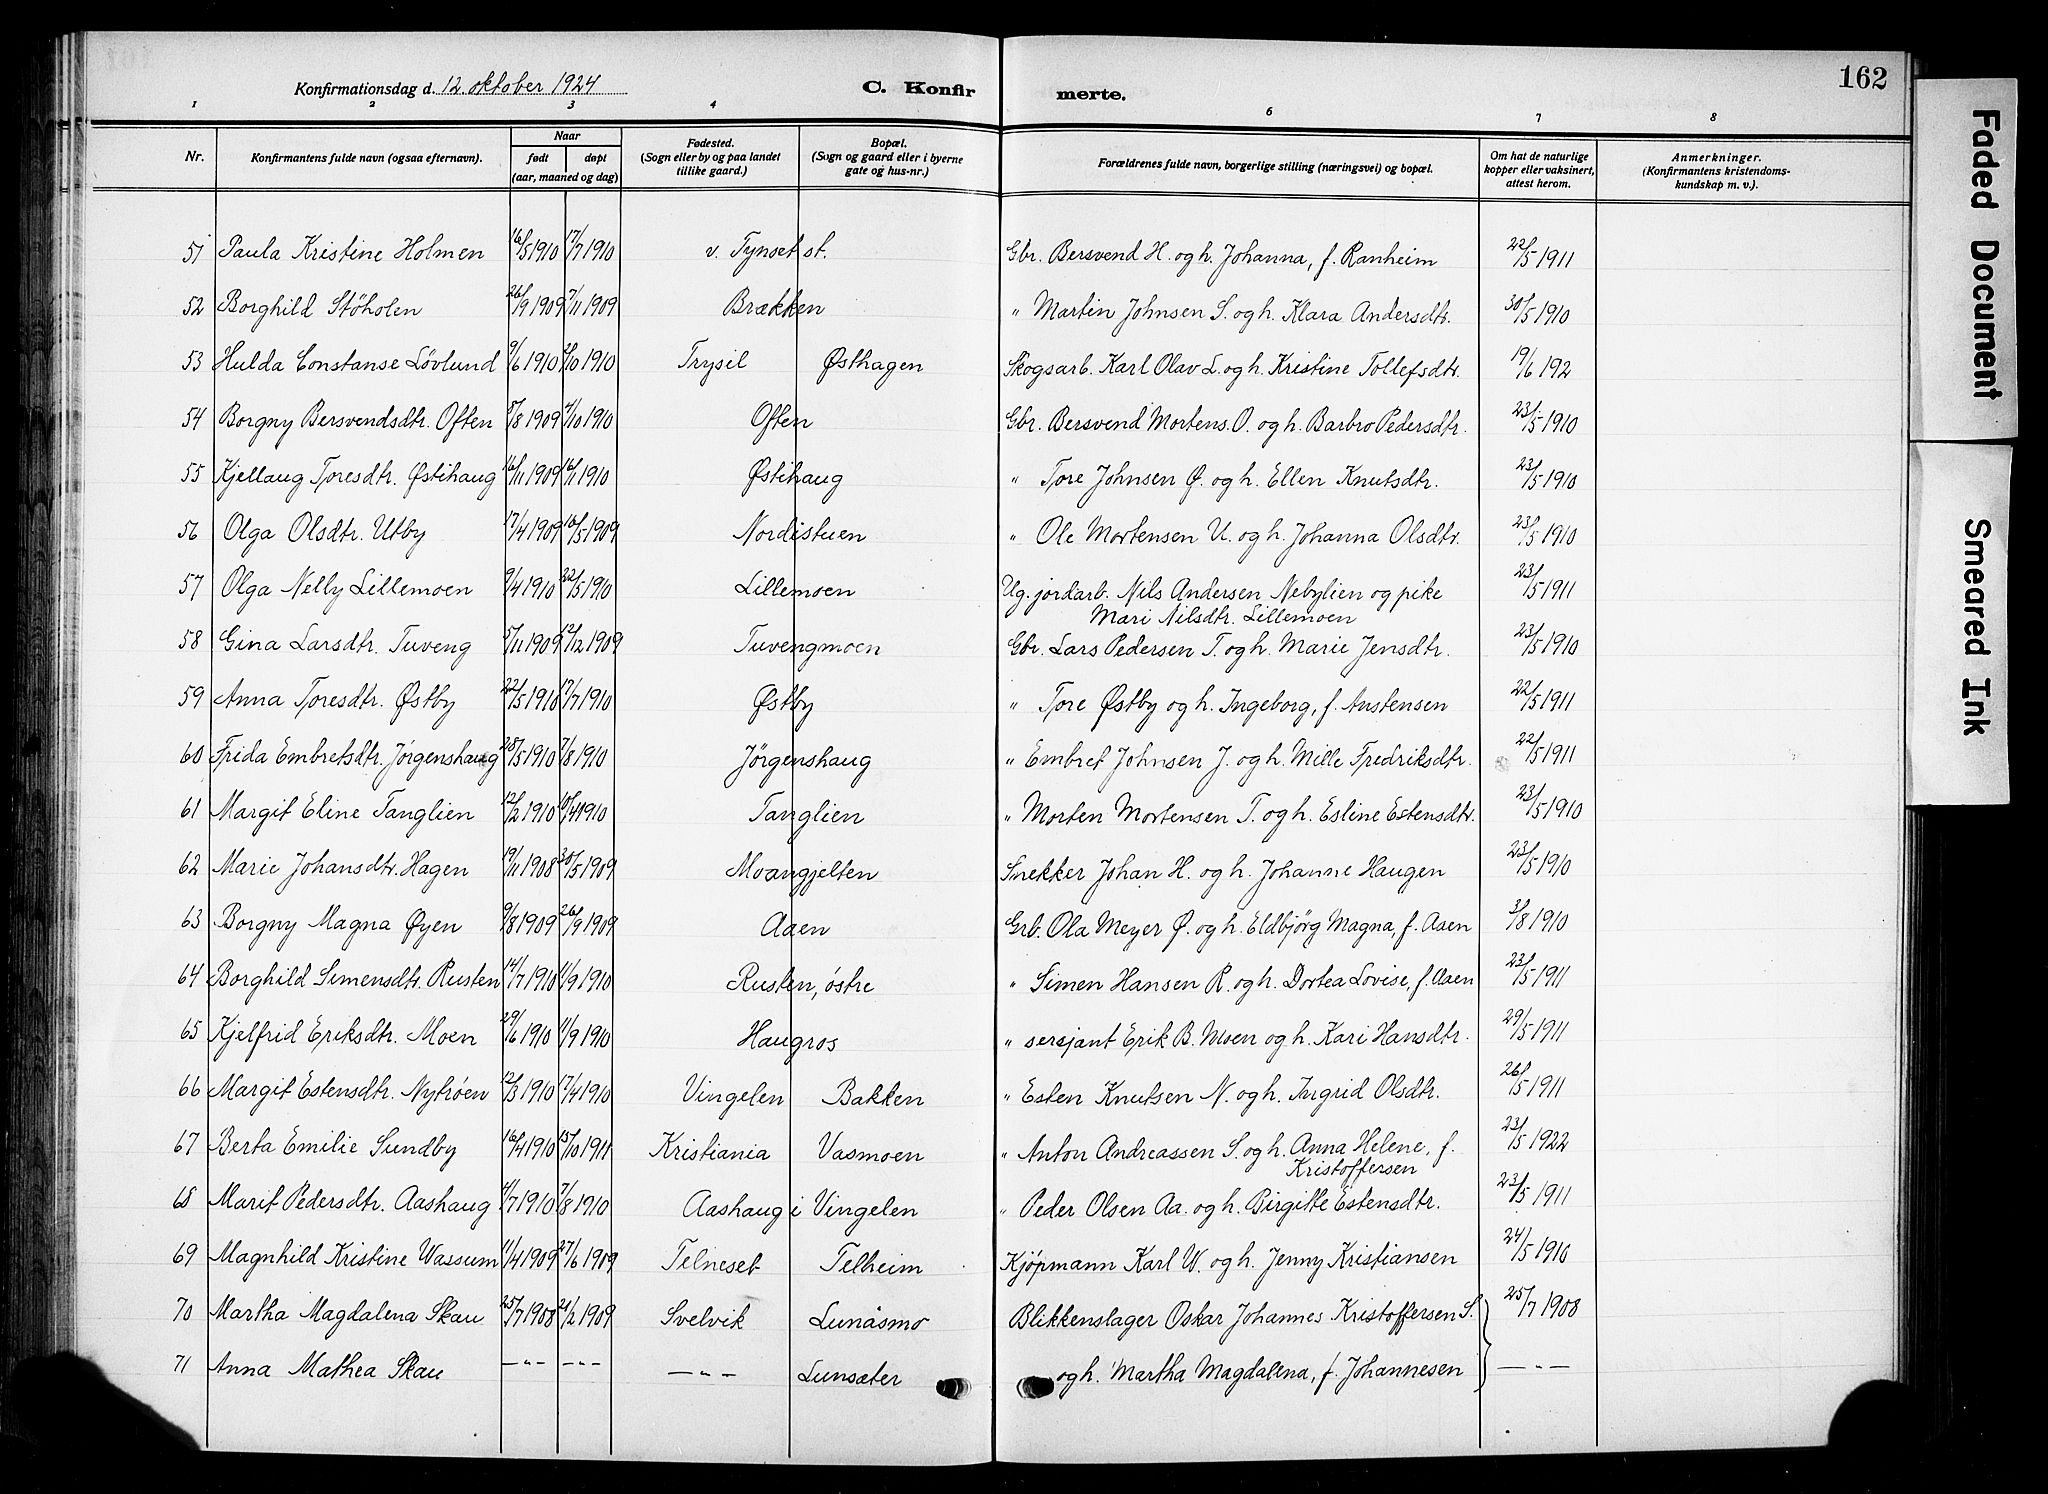 162
Konfirmationsdag d. 12. oktober 1924
C. Konfirmerte.
1 2 3 4 6 7 8
Nr. Konfirmantens fulde navn (ogsaa efternavn). Naar født døpt (aar, maaned og dag) Fødested. (Sogn eller by og paa landet tillike gaard.) Bopæl. (Sogn og gaard eller i byerne gate og hus-nr.) Forældrenes fulde navn, borgerlige stilling (næringsvei) og bopæl. Om hat de naturlige kopper eller vaksinert, attest herom. Anmerkninger. (Konfirmantens kristendomskundskap m. v.).
51 Paula Kristine Holmen 16/5 1910 17/7 1910 v. Tynset st. Gbr. Bersvend H. og h. Johanna, f. Ranheim 22/5 1911
52 Borghild Stöholen 26/9 1909 7/11 1909 Brækken " Martin Johnsen S. og h. Klara Andersdtr. 30/5 1910
53 Hulda Constanse Lövlund 9/6 1910 2/10 1910 Trysil Østhagen Skogsarb. Karl Olav L. og h. Kristine Tollefsdtr. 19/6 192
54 Borgny Bersvendsdtr. Often 8/8 1909 4/10 1910 Often Gbr. Bersvend Mortens. O. og h. Barbro Pedersdtr. 23/5 1910
55 Kjellaug Toresdtr. Østihaug 16/11 1909 16/1 1910 Østihaug " Tore Johnsen Ø. og h. Ellen Knutsdtr. 23/5 1910
56 Olga Olsdtr. Utby 17/4 1909 16/5 1909 Nordistuen " Ole Mortensen U. og h. Johanna Olsdtr. 23/5 1910
57 Olga Nelly Lillemoen 9/4 1910 22/5 1910 Lillemoen Ug. jordarb. Nils Andersen Nebylien og pike 23/5 1911
Mari Nilsdtr. Lillemoen
58 Gina Larsdtr. Tuveng 5/11 1909 12/12 1909 Tuvengmoen Gbr. Lars Pedersen T. og h. Marie Jensdtr. 23/5 1910
59 Anna Toresdtr. Østby 22/5 1910 17/7 1910 Østby " Tore Østby og h. Ingeborg, f. Austensen 22/5 1911
60 Frida Embretsdtr. Jörgenshaug 28/5 1910 7/8 1910 Jörgenshaug " Embret Johnsen J. og h. Mille Fredriksdtr. 22/5 1911
61 Margit Eline Tanglien 12/2 1910 10/4 1910 Tanglien " Morten Mortensen T. og h. Esline Estensdtr. 23/5 1910
62 Marie Johansdtr. Hagen 19/11 1908 30/5 1909 Moangjelten Snekker Johan H. og h. Johanne Haugen 23/5 1910
63 Borgny Magna Øyen 9/8 1909 26/9 1909 Aaen Grb. Ola Meyer Ø. og h. Eldbjørg Magna, f. Aaen 3/8 1910
64 Borghild Simensdtr. Rusten 14/7 1910 11/9 1910 Rusten, østre " Simen Hansen R. og h. Dortea Lovise, f. Aaen 23/5 1911
65 Kjelfrid Eriksdtr. Moen 29/6 1910 11/9 1910 Haugros " sersjant Erik B. Moen og h. Kari Hansdtr. 29/5 1911
66 Margit Estensdtr. Nytrøen 12/3 1910 17/4 1910 Vingelen Bakken " Esten Knutsen N. og h. Ingrid Olsdtr. 26/5 1911
67 Berta Emilie Sundby 16/4 1910 15/10 1911 Kristiania Vasmoen " Anton Andreassen S. og h. Anna Helene, f. 23/5 1922
Kristoffersen
68 Marit Pedersdtr. Aashaug 4/7 1910 7/8 1910 Aashaug i Vingelen " Peder Olsen Aa. og h. Birgitte Estensdtr. 23/5 1911
69 Magnhild Kristine Wassum 11/4 1909 27/6 1909 Telneset Telheim Kjöpmann Karl W. og h. Jenny Kristiansen 24/5 1910
70 Martha Magdalena Skau 25/7 1908 21/2 1909 Svelvik Lunäsmo Blikkenslager Oskar Johannes Kristoffersen S. 25/7 1908
71 Anna Mathea Skau —"— —"— —"— Lunsæter og h. Martha Magdalena, f. Johannesen —"—
Faded Document
Smeared Ink